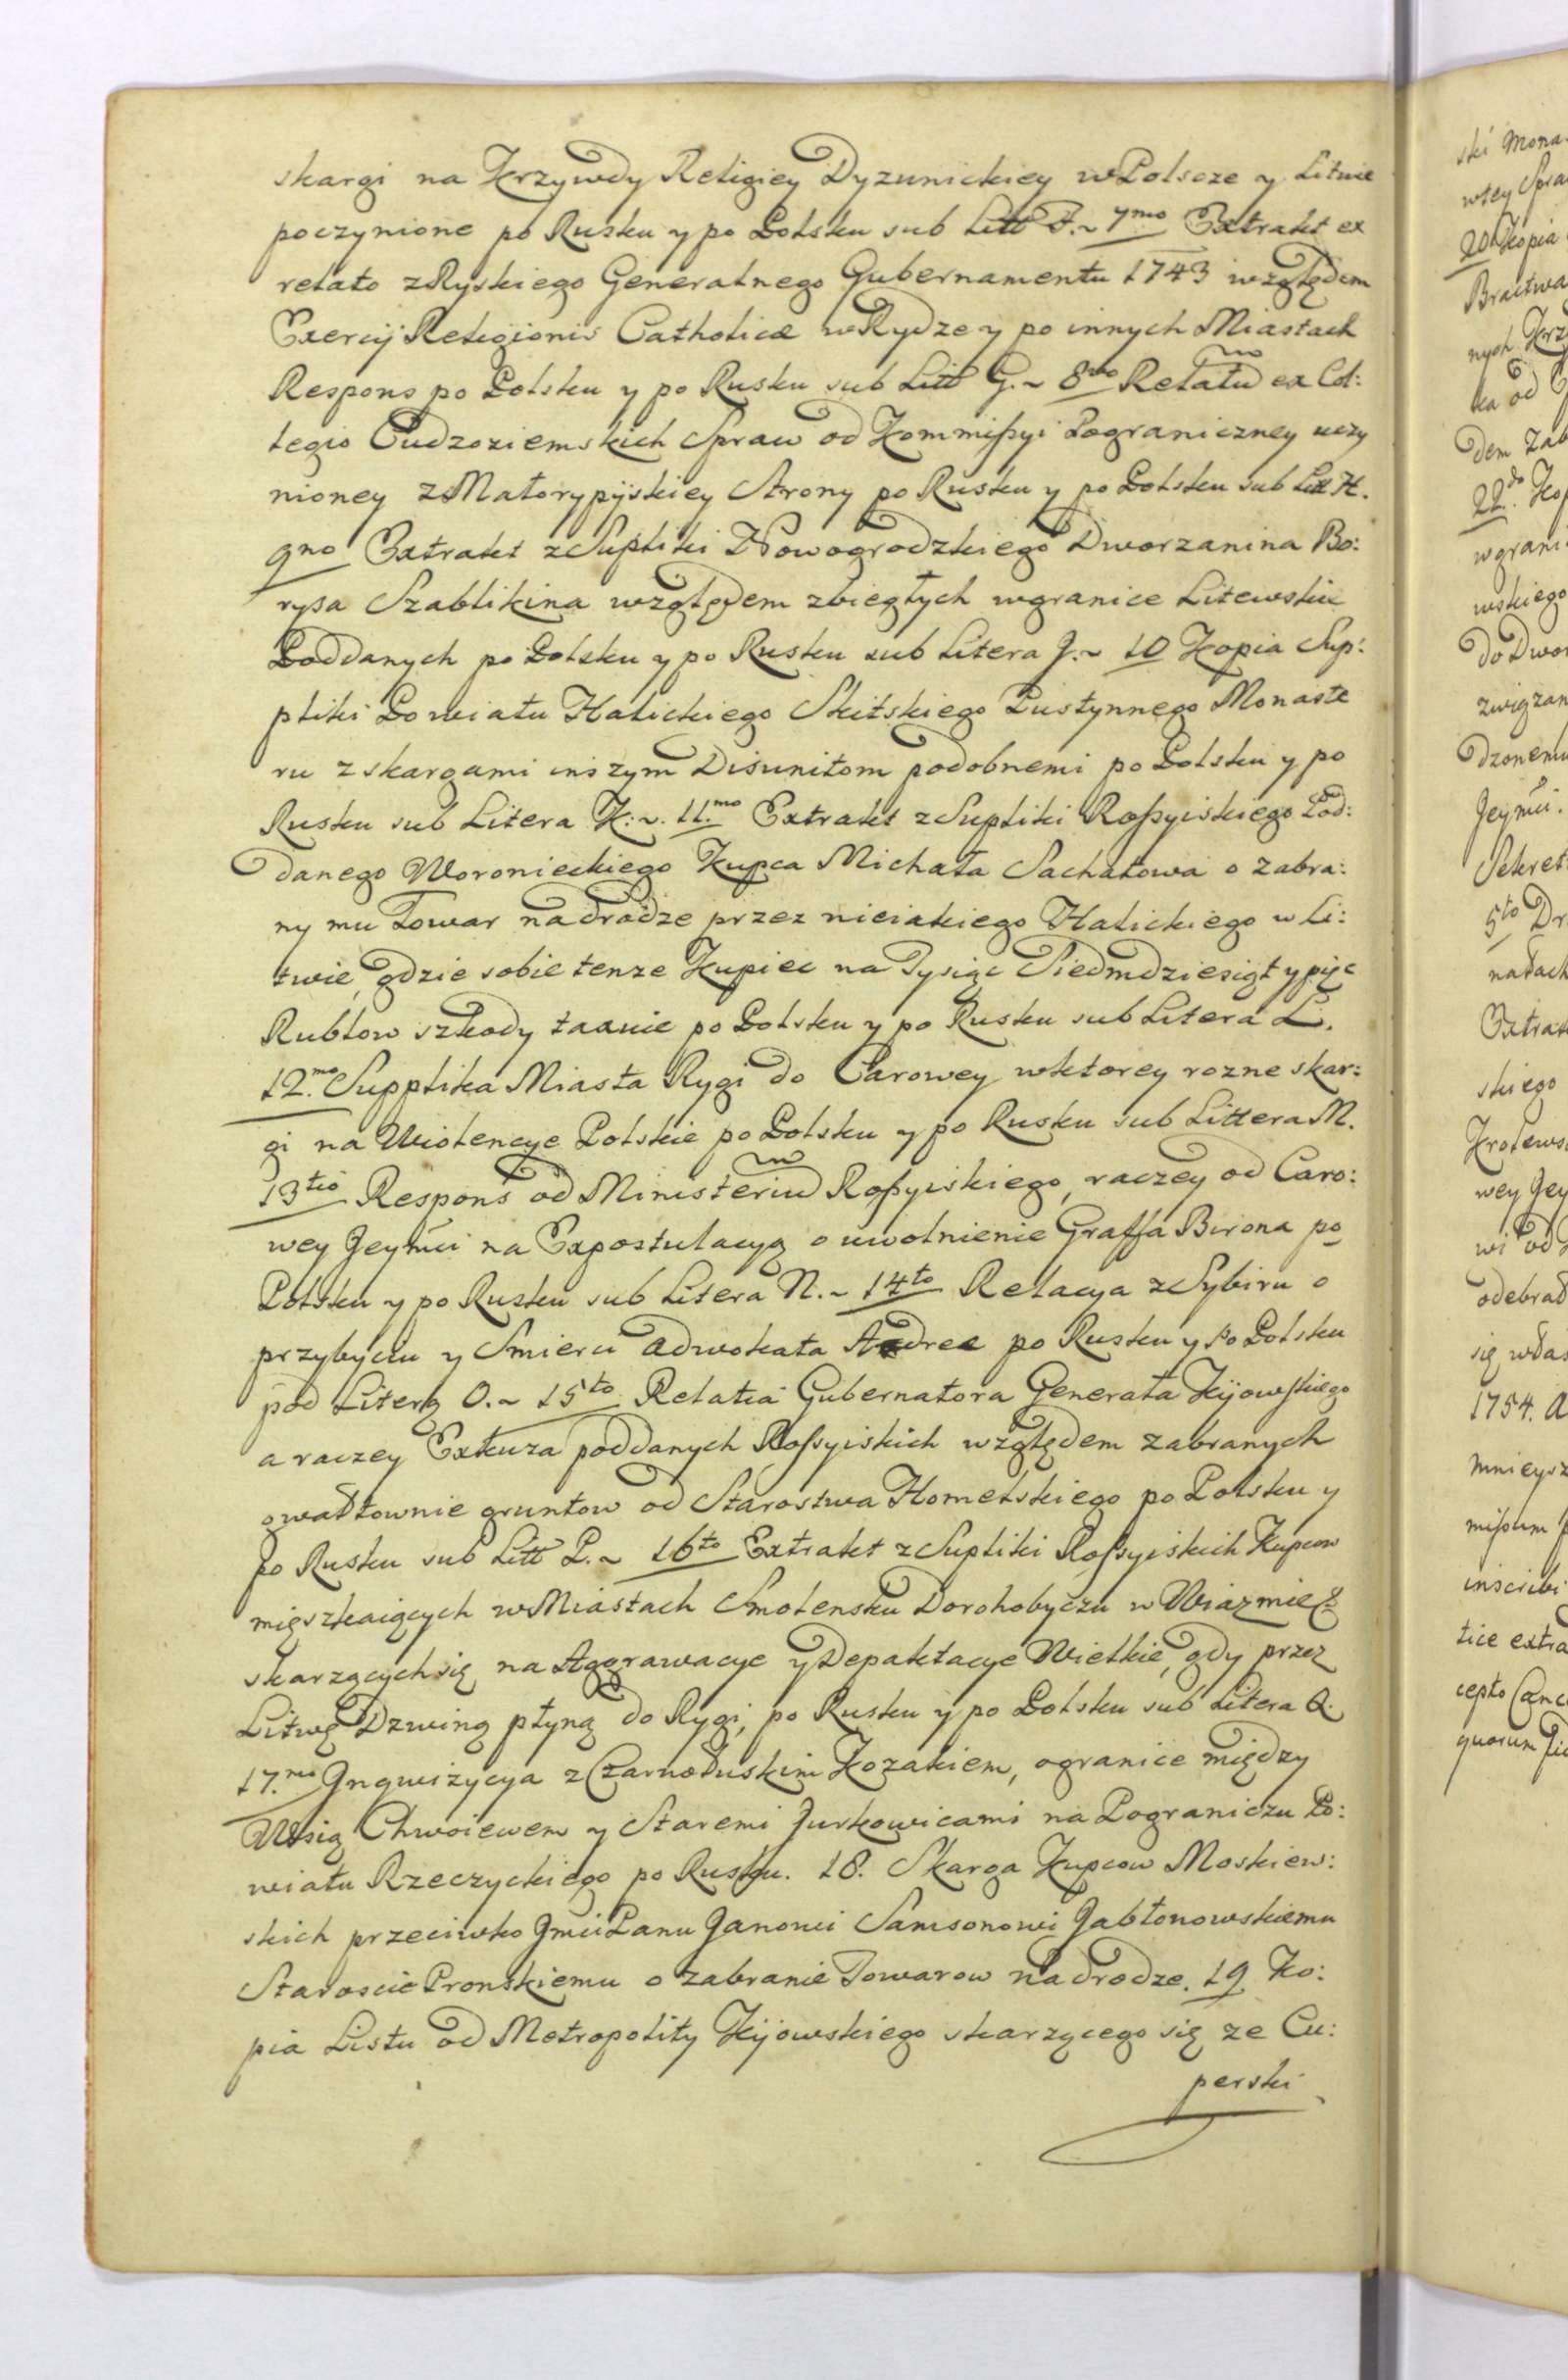 skargi na Krzywdy Religiey Dyzunickiey w Polscze y Litwie
poczynione po Rusku y po Polsku sub Litt F. ~ 7mo Extrakt ex
relato z Ryskiego Generalnego Gubernamentu 1743 względem
Exercij Religionis Catholicæ w Rydze y po innych Miastach
Respons po Polsku y po Rusku sub Litt G. ~ 8vo Relatũ ex Col:
legio Cudzoziemskich Spraw od Kommissyi Pograniczney uczy
nioney z Małorossyiskiey Strony po Rusku y po Polsku sub Litt H.
9no Extrakt z Supliki Nowogrodzkiego Dworzanina Bo:
rysa Szablikina względem zbiegłych w granice Litewskie
Poddanych po Polsku y po Rusku sub Litera J. ~ 10 Kopia Sup:
pliki Powiatu Halickiego Skitskiego Pustynnego Monaste
ru z skargami inszym Disunitom podobnemi po Polsku y po
Rusku sub Litera K: ~. 11.mo Extrakt z Supliki Rossyiskiego Pod:
danego Woronieckiego Kupca Michała Sachatowa o zabra:
ny mu Towar na drodze przez nieiakiego Halickiego w Li:
twie, gdzie sobie tenze Kupiec na Tysiąc Siedmdziesiąt y pięc
Rublow szkody taxuie po Polsku y po Rusku sub Litera L.
12.mo Supplika Miasta Rygi do Carowey w ktorey rozne skar:
gi na Wiolencye Polskie po Polsku y po Rusku sub Littera M.
13tio Respons od Ministeriũ Rossyiskiego, raczey od Caro:
wey Jeymci na Expostulacyą o uwolnienie Graffa Birona po
Polsku y po Rusku sub Litera N. ~ 14to Relacya z Sybiru o
przybyciu y Smierci Adwokata Andree po Rusku y Po Polsku
pod Literą O. ~ 15to Relatia Gubernatora Generała Kijowskiego
a raczey Exkuza poddanych Rossyiskich względem zabranych
gwałtownie gruntow od Starostwa Homelskiego po Polsku y
po Rusku sub Litt P. ~ 16to Extrakt z Supliki Rossyiskich Kupcow
mięszkaiących w Miastach Smolensku Dorohobyczu w Wiazmie &
skarzących się na Aggrawacye y Depaktacye Wielkie, gdy przez
Litwę Dzwiną płyną do Rygi, po Rusku y po Polsku sub Litera Q.
17.mo Jnqwizycya z Czarnołuskim Kozakiem, o granice między
Wsią Chwoiewem y Staremi Jurkowicami na Pograniczu Po:
wiatu Rzeczyckiego po Rusku. 18. Skarga Kupcow Moskiew:
skich przeciwko Jmci Panu Janowi Samsonowi Jabłonowskiemu
Staroscie Pronskiemu o zabranie Towarow na drodze. 19 Ko:
pia Listu od Metropolity Kijowskiego skarzącego się ze Cu:
perski